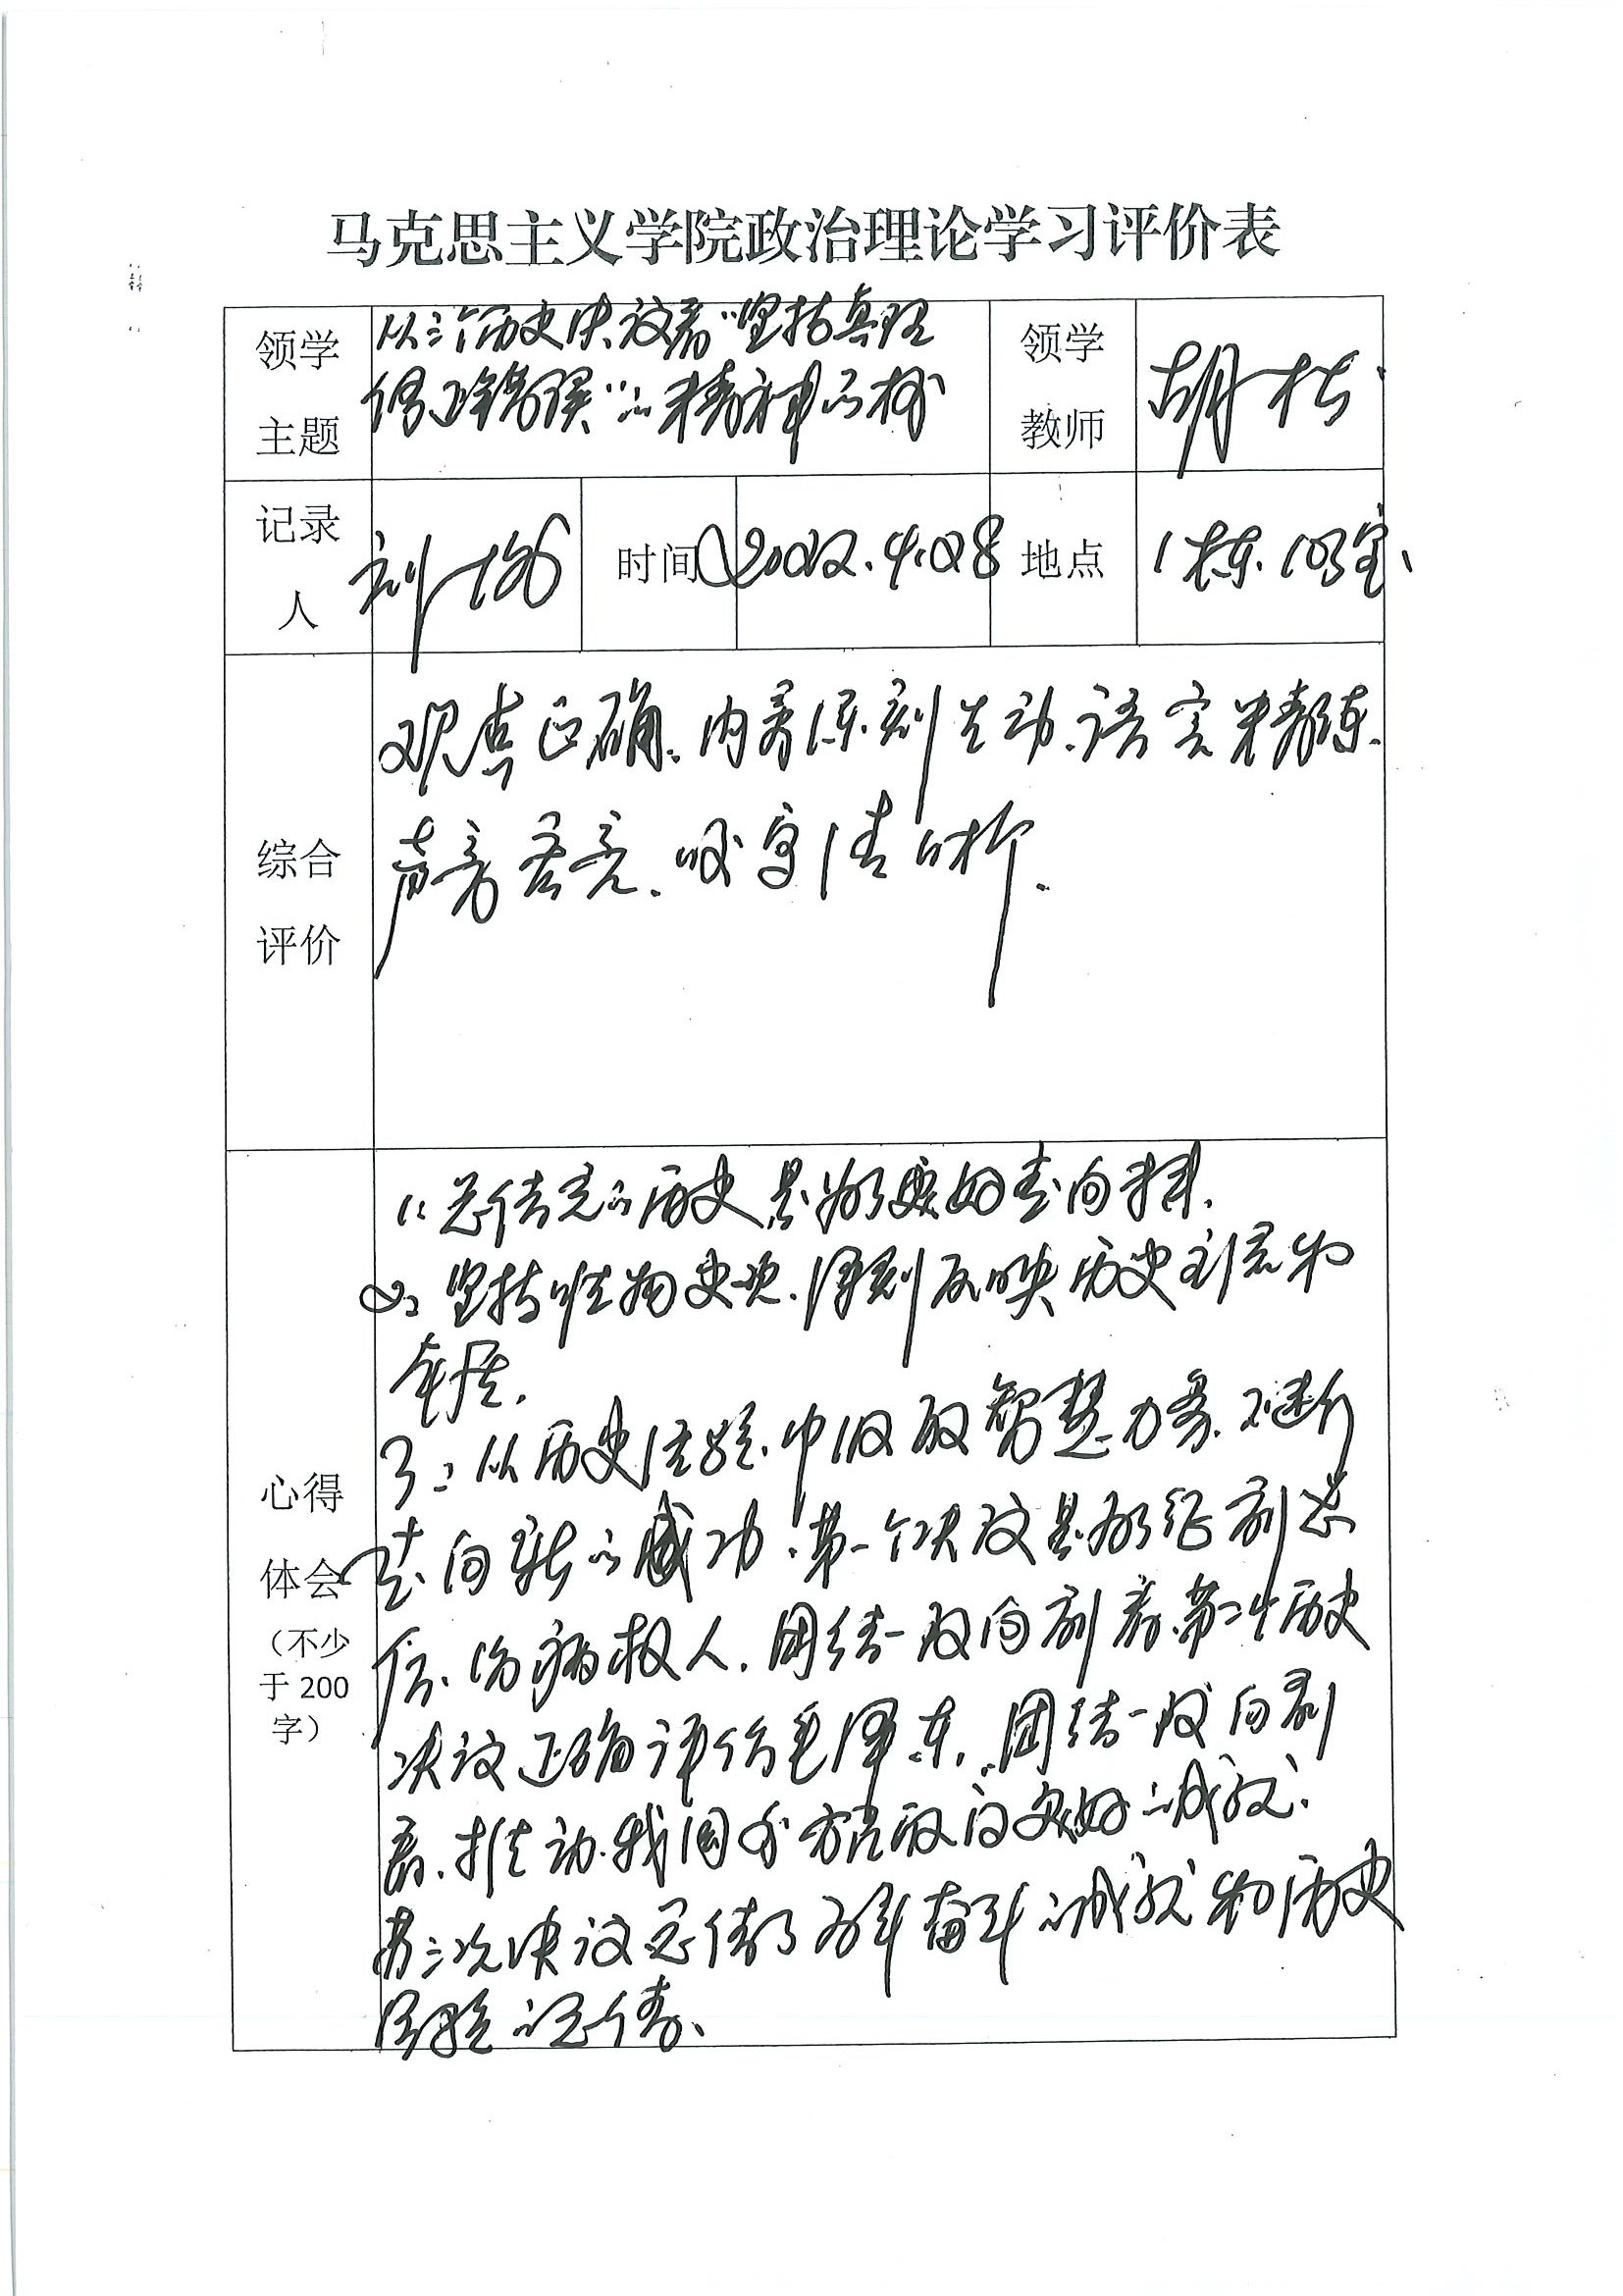 马克思主义学院政治理论学习评价表
领学
主题
从三个历史决议看“坚持真理
修正错误”的精神品格
领学
教师
胡
记录
人
刘
时间
2022.4.28
地点
1栋.103室、
综合
评价
观点正确、内容深刻生动、语言精练、
声音宏亮、咬字清晰.
心得
体会
(不少
于200
字)
1: 总结党的历史是为了更好走向未来.
2: 坚持唯物史观.深刻反映历史主流和
本质.
3: 从历史经验中汲取智慧力量、不断
走向新的成功!第一个决议是为了惩前毖
后、治病救人.团结一致向前看、第二个历史
决议正确评价毛泽东.团结一致向前
看、推动我国各方面取得更好的成就.
第三次决议总结了百年奋斗的成就和历史
经验的总结、